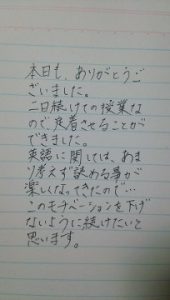 本日も、ありがとうご
ざいました。
二日続けての授業な
ので、定着させることが
できました。
英語に関しては、あま
り考えず読める事が
楽しくなってきたので…
このモチベーションを下げ
ないように続けたいと
思います。